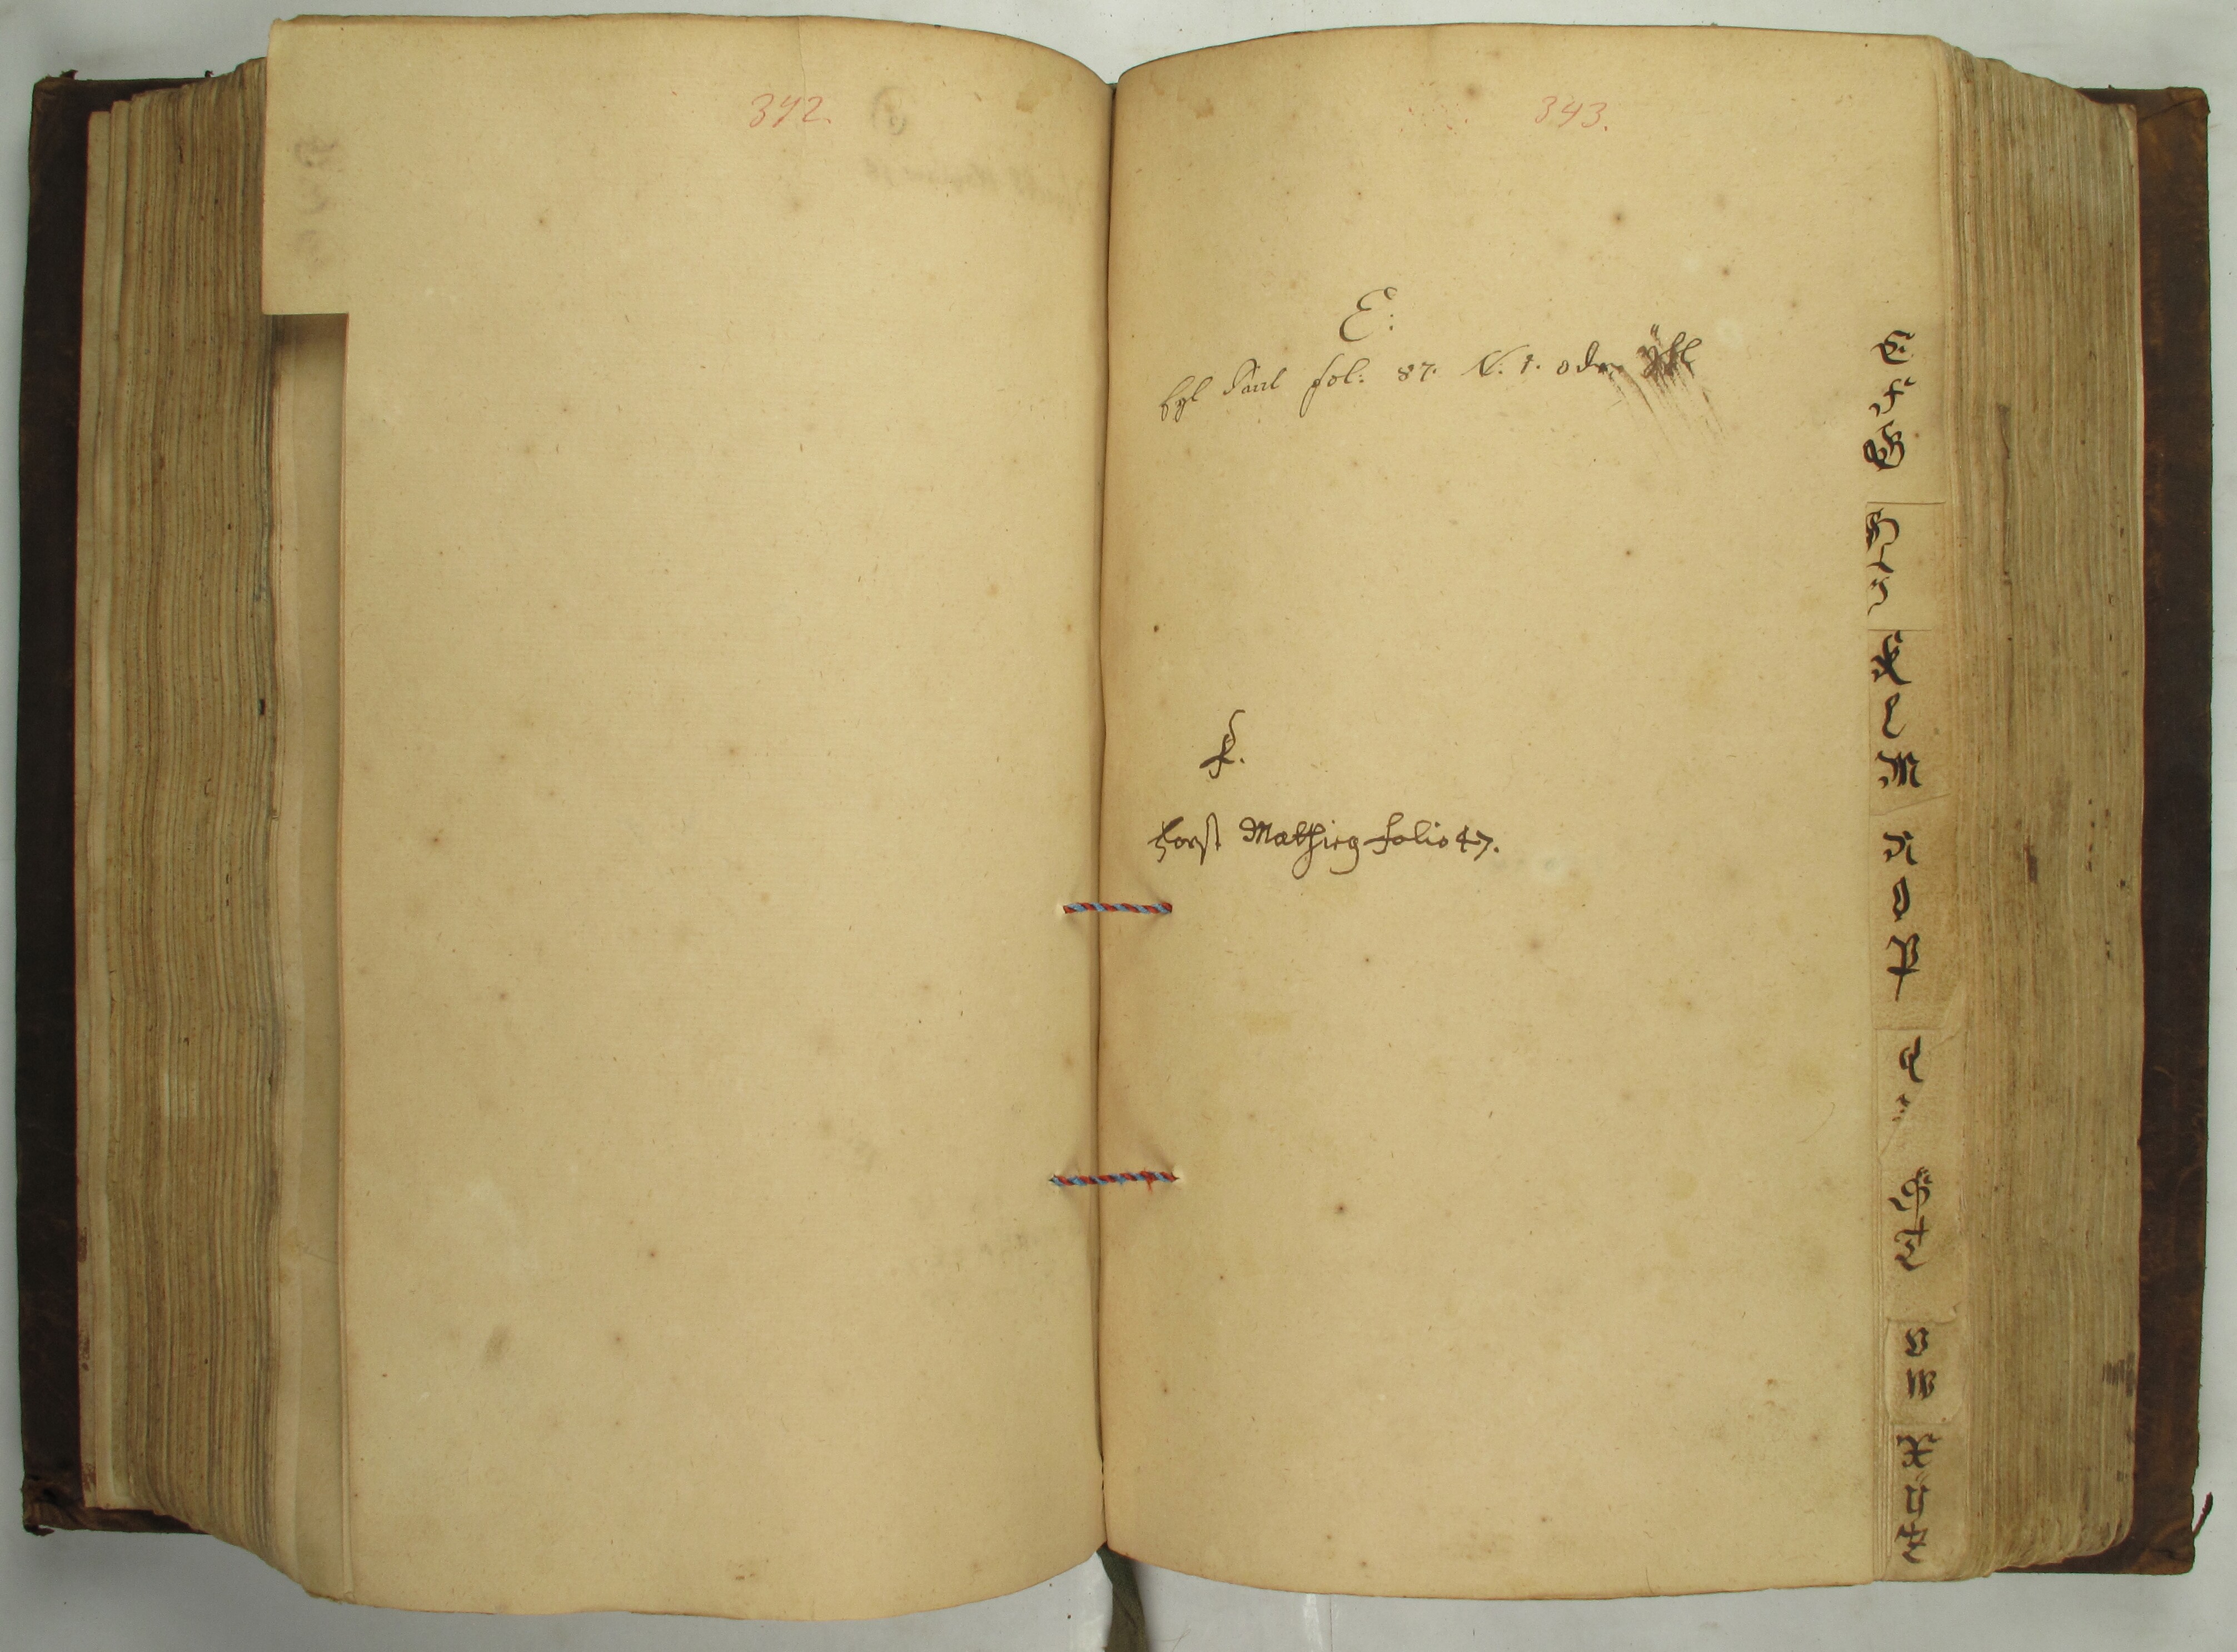 342.
343.
E:
Egl Paul fol: 87. N. 1. oder
F.
Forst Mathieg folio 47.
E
F
G
H
I
K
L
M
N
O
P
Q
S
T
V
W
X
Y
Z